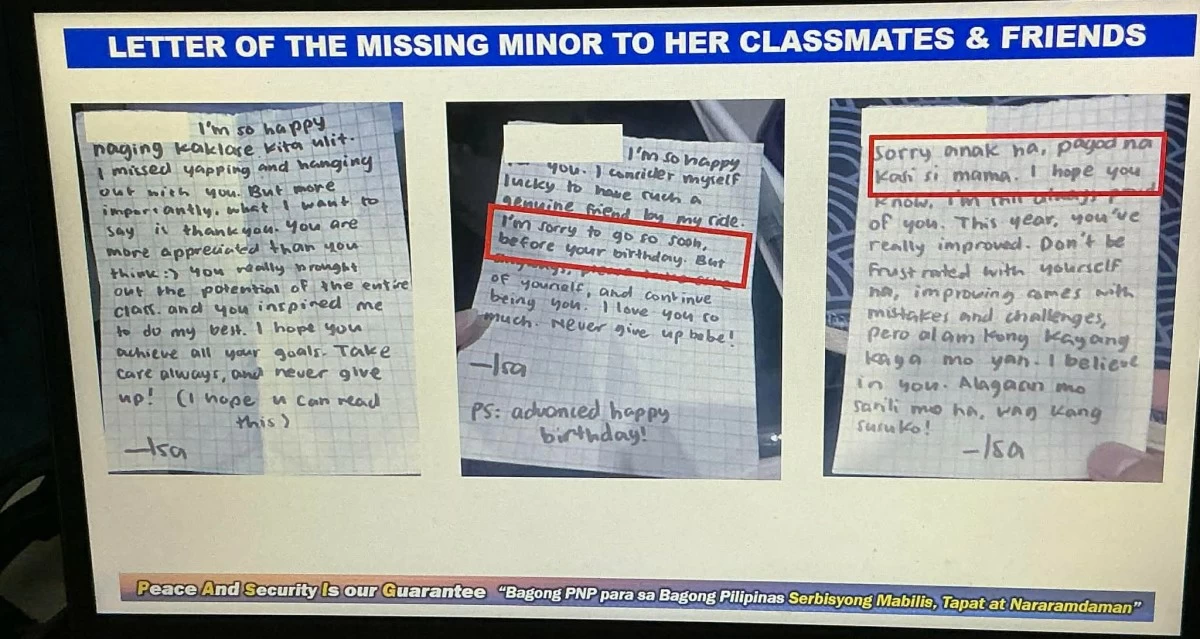 LETTER OF THE MISSING MINOR TO HER CLASSMATES & FRIENDS
I'm so happy
naging kaklase kita ulit.
I missed yapping and hanging
out with you. But more
importantly, what I want to
say is thank you. You are
more appreciated than you
think:) You really brought
out the potential of the entire
class. and you inspired me
to do my best. I hope you
achieve all your goals. Take
care always, and never give
up! (I hope u can read
this)
—Isa
I'm so happy
you. I concider myself
lucky to have such a
genuine friend by my side.
I'm sorry to go so soon,
before your birthday. But
anyways, please take care
of yourself, and continue
being you. I love you so
much. Never give up bebe!
—Isa
PS: advanced happy
birthday!
Sorry anak ha, pagod na
kasi si mama. I hope you
know, I'm still always proud
of you. This year, you've
really improved. Don't be
frustrated with yourself
ha, improving comes with
mistakes and challenges,
pero alam kong kayang
kaya mo yan. I believe
in you. Alagaan mo
sarili mo ha, wag kang
susuko!
—Isa
Peace And Security Is our Guarantee "Bagong PNP para sa Bagong Pilipinas Serbisyong Mabilis, Tapat at Nararamdaman"